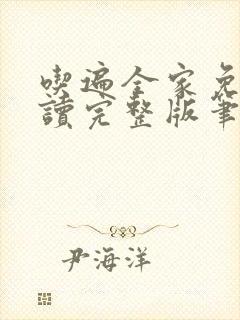 喫遍全家免
讀完整版筆
尹海洋